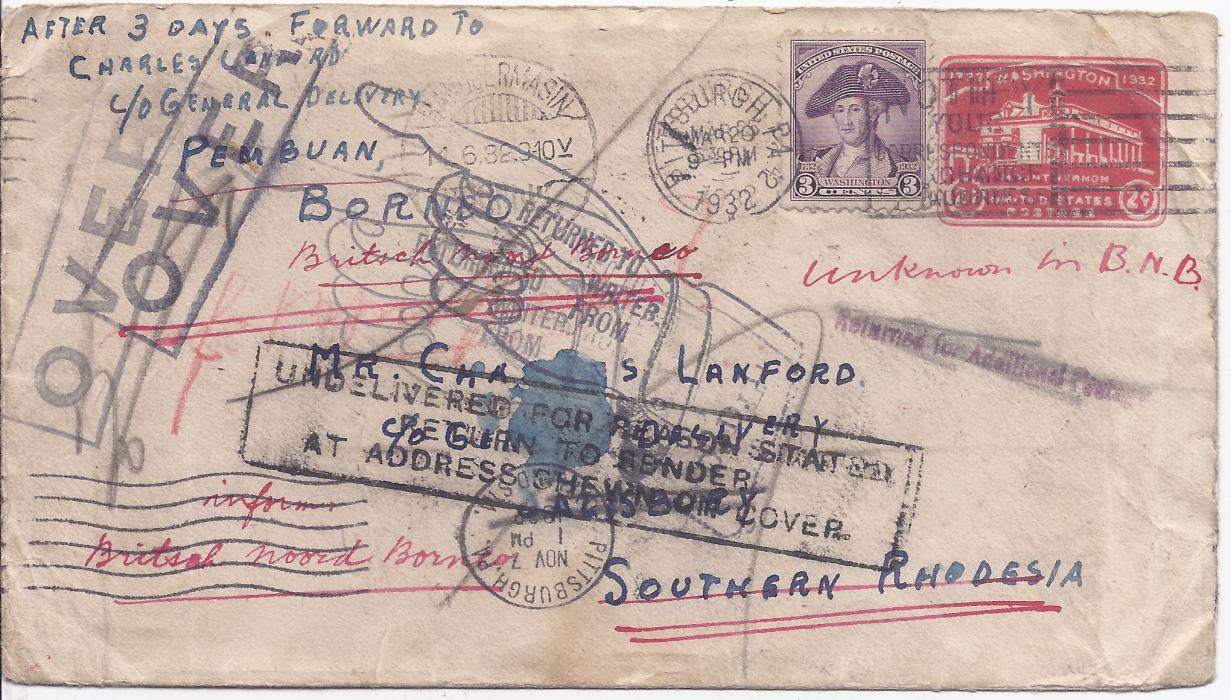 AFTER 3 DAYS. FORWARD TO
CHARLES LANFORD
C/O GENERAL DELIVERY
PEMBUAN,
BORNEO
Britsch Noord Borneo
14.6.32.9-10V
PITTSBURGH, PA.
MAR 20
9 PM
1932
UNITED STATES POSTAGE
1732 1932
3 WASHINGTON 3
CENTS
1732 WASHINGTON 1932
MOUNT VERNON
UNITED STATES
POSTAGE
2¢
OVER
OVER
RETURNED TO
WRITER
FROM
WRITER
FROM
Unknown in B.N.B.
Returned for Additional
MR. CHA S LANFORD
C/O GEN DELIVERY
SALISBORY
SOUTHERN RHODESIA
UNDELIVERED FOR REASON STATED
RETURN TO SENDER
AT ADDRESS SHEWN ON COVER.
inform.
Britsch Noord Borneo
PITTSBURGH, P
NOV 7
1 PM